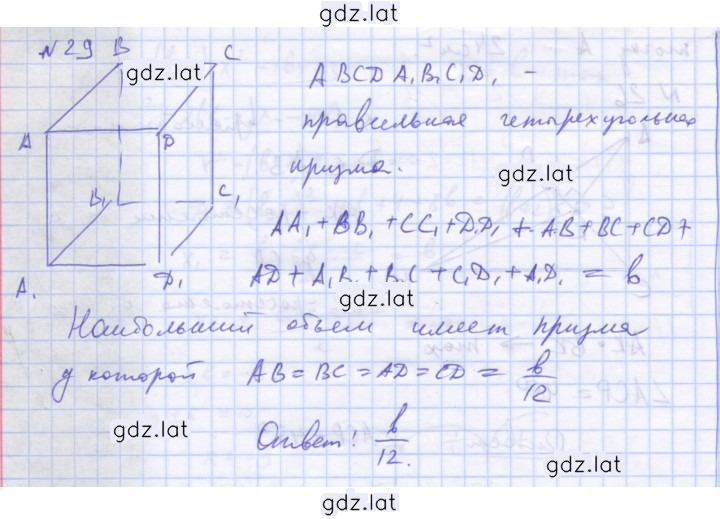 gdz.lat
N29
B
C
gdz.lat
A
D
B₁
C₁
A₁
D₁
ABCDA₁B₁C₁D₁ –
правильная четырехугольная
gdz.lat
призма.
AA₁+BB₁+CC₁+DD₁+AB+BC+CD+
AD+A₁B₁+B₁C₁+C₁D₁+A₁D₁ = b
gdz.lat
Наибольший объем имеет призма
у которой AB=BC=AD=CD= b/12
gdz.lat
Ответ: b/12.
gdz.lat
gdz.lat